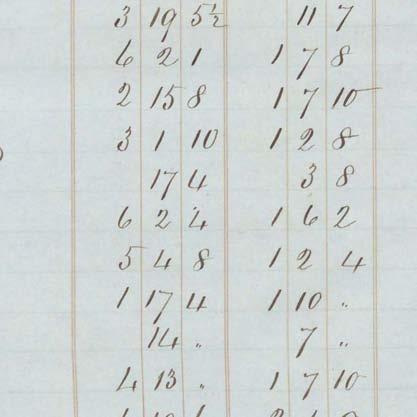 3 19 5½ 11 7
6 2 1 1 7 8
2 15 8 1 7 10
3 1 10 1 2 8
17 4 3 8
6 2 4 1 6 2
5 4 8 1 2 4
1 17 4 1 10 "
14 " 7 "
4 13 " 1 7 10